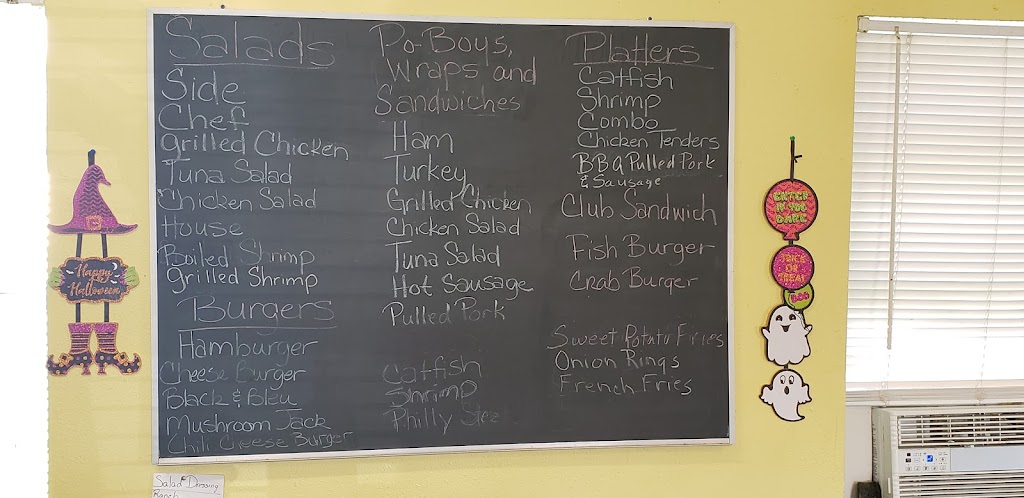 Salads
Side
Chef
Grilled Chicken
Tuna Salad
Chicken Salad
House
Boiled Shrimp
Grilled Shrimp
Burgers
Hamburger
Cheese Burger
Black & Bleu
Mushroom Jack
Chili Cheese Burger
Po-Boys,
Wraps and
Sandwiches
Ham
Turkey
Grilled Chicken
Chicken Salad
Tuna Salad
Hot Sausage
Pulled Pork
Catfish
Shrimp
Philly
Platters
Catfish
Shrimp
Combo
Chicken Tenders
BBQ Pulled Pork
& Sausage
Club Sandwich
Fish Burger
Crab Burger
Sweet Potato Fries
Onion Rings
French Fries
Happy
Halloween
ENTER
IF YOU
DARE
TRICK
OR
TREAT
BOO
Salad Dressing
Ranch